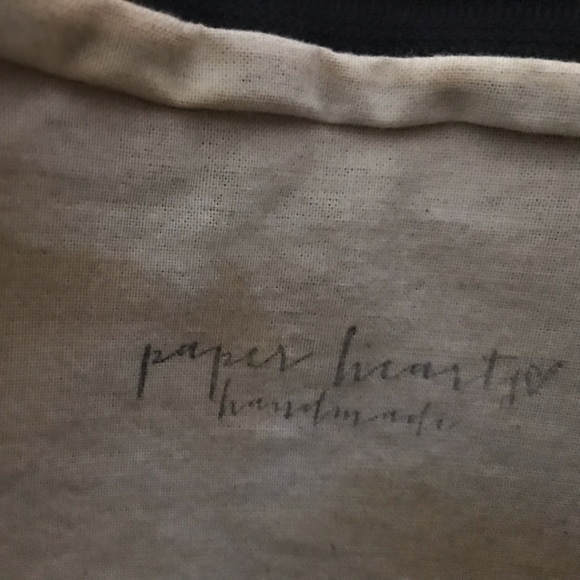 paper hearts
handmade